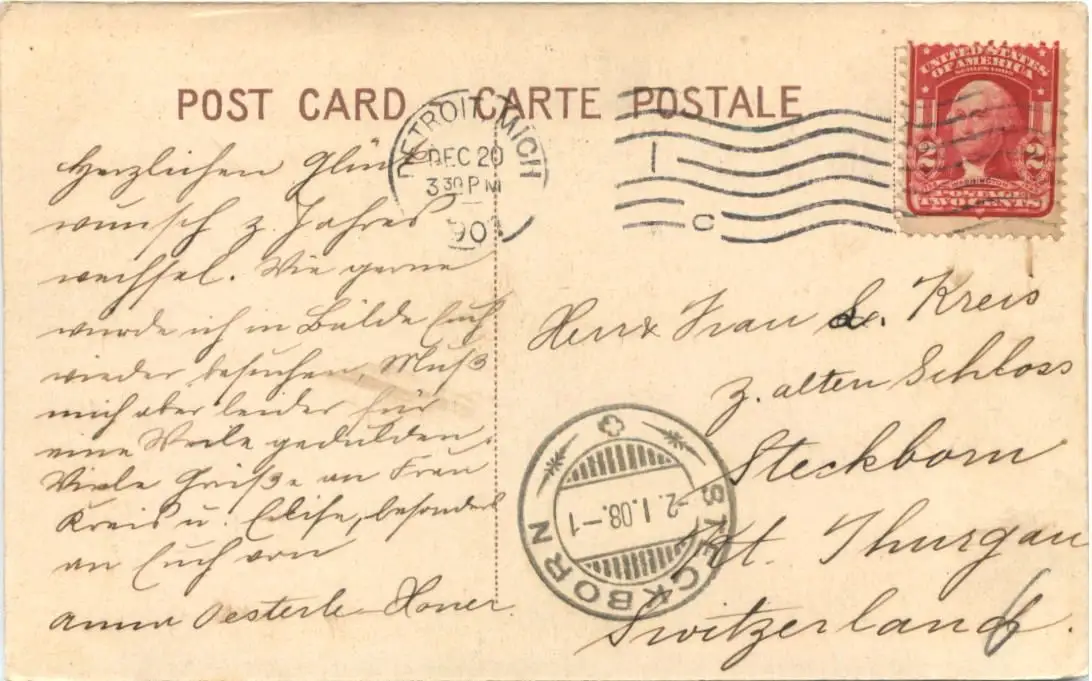 POST CARD CARTE POSTALE
DETROIT, MICH
DEC 20
3 30 PM
190
C
UNITED STATES
OF AMERICA
SERIES 1902
2 2
WASHINGTON
POSTAGE
TWO CENTS
Herzlichen Glück
wunsch z. Jahres
wechsel. Wie gerne
würde ich in Bälde Euch
wieder besuchen, Muß
mich aber leider für
eine Weile gedulden.
Viele Grüße an Frau
Kreis u. Elise, besonders
an Euch von
Anna Oesterle Honer.
Herr & Frau L. Kreis
z. alten Schloss
Steckborn
Kt. Thurgau
Switzerland.
6
STECKBORN
-2.I.08.-1